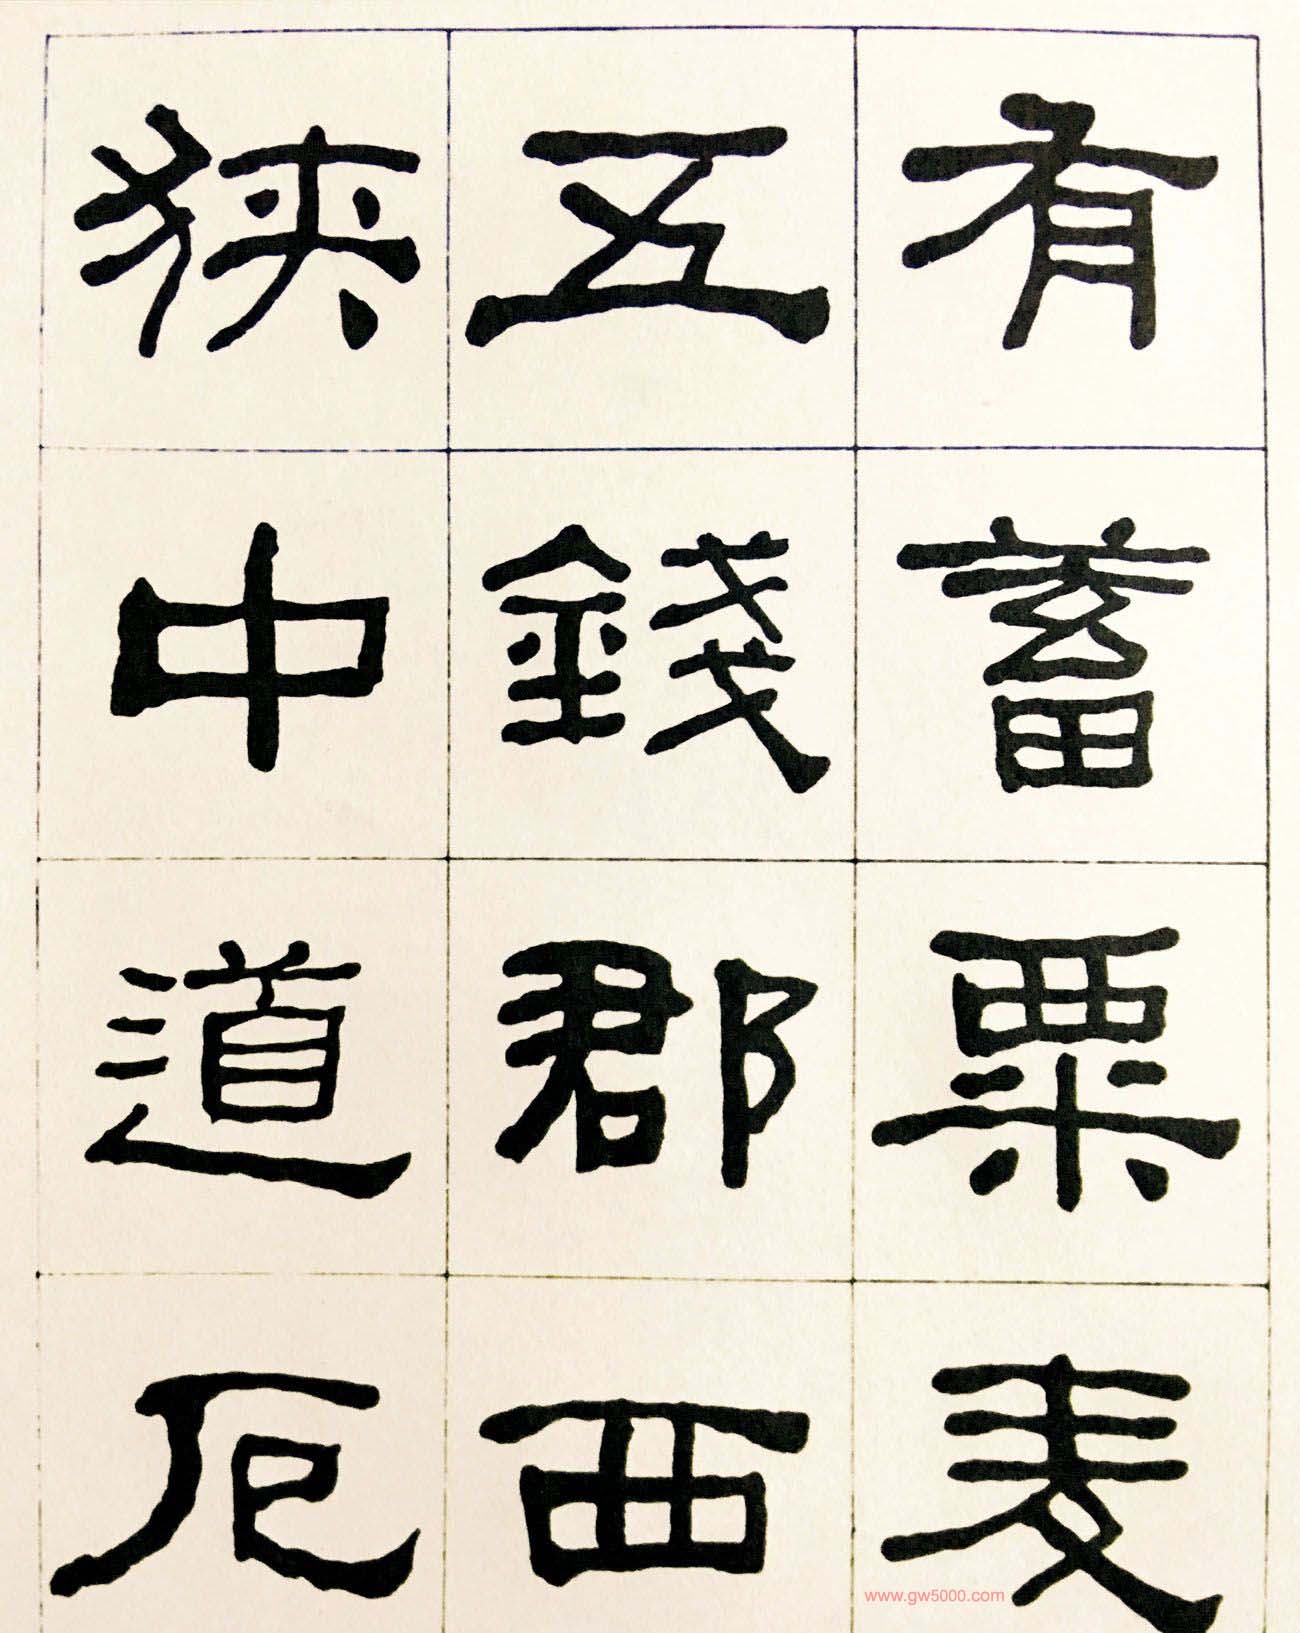 有蓄粟麦
五錢郡西
狭中道厄
www.gw5000.com